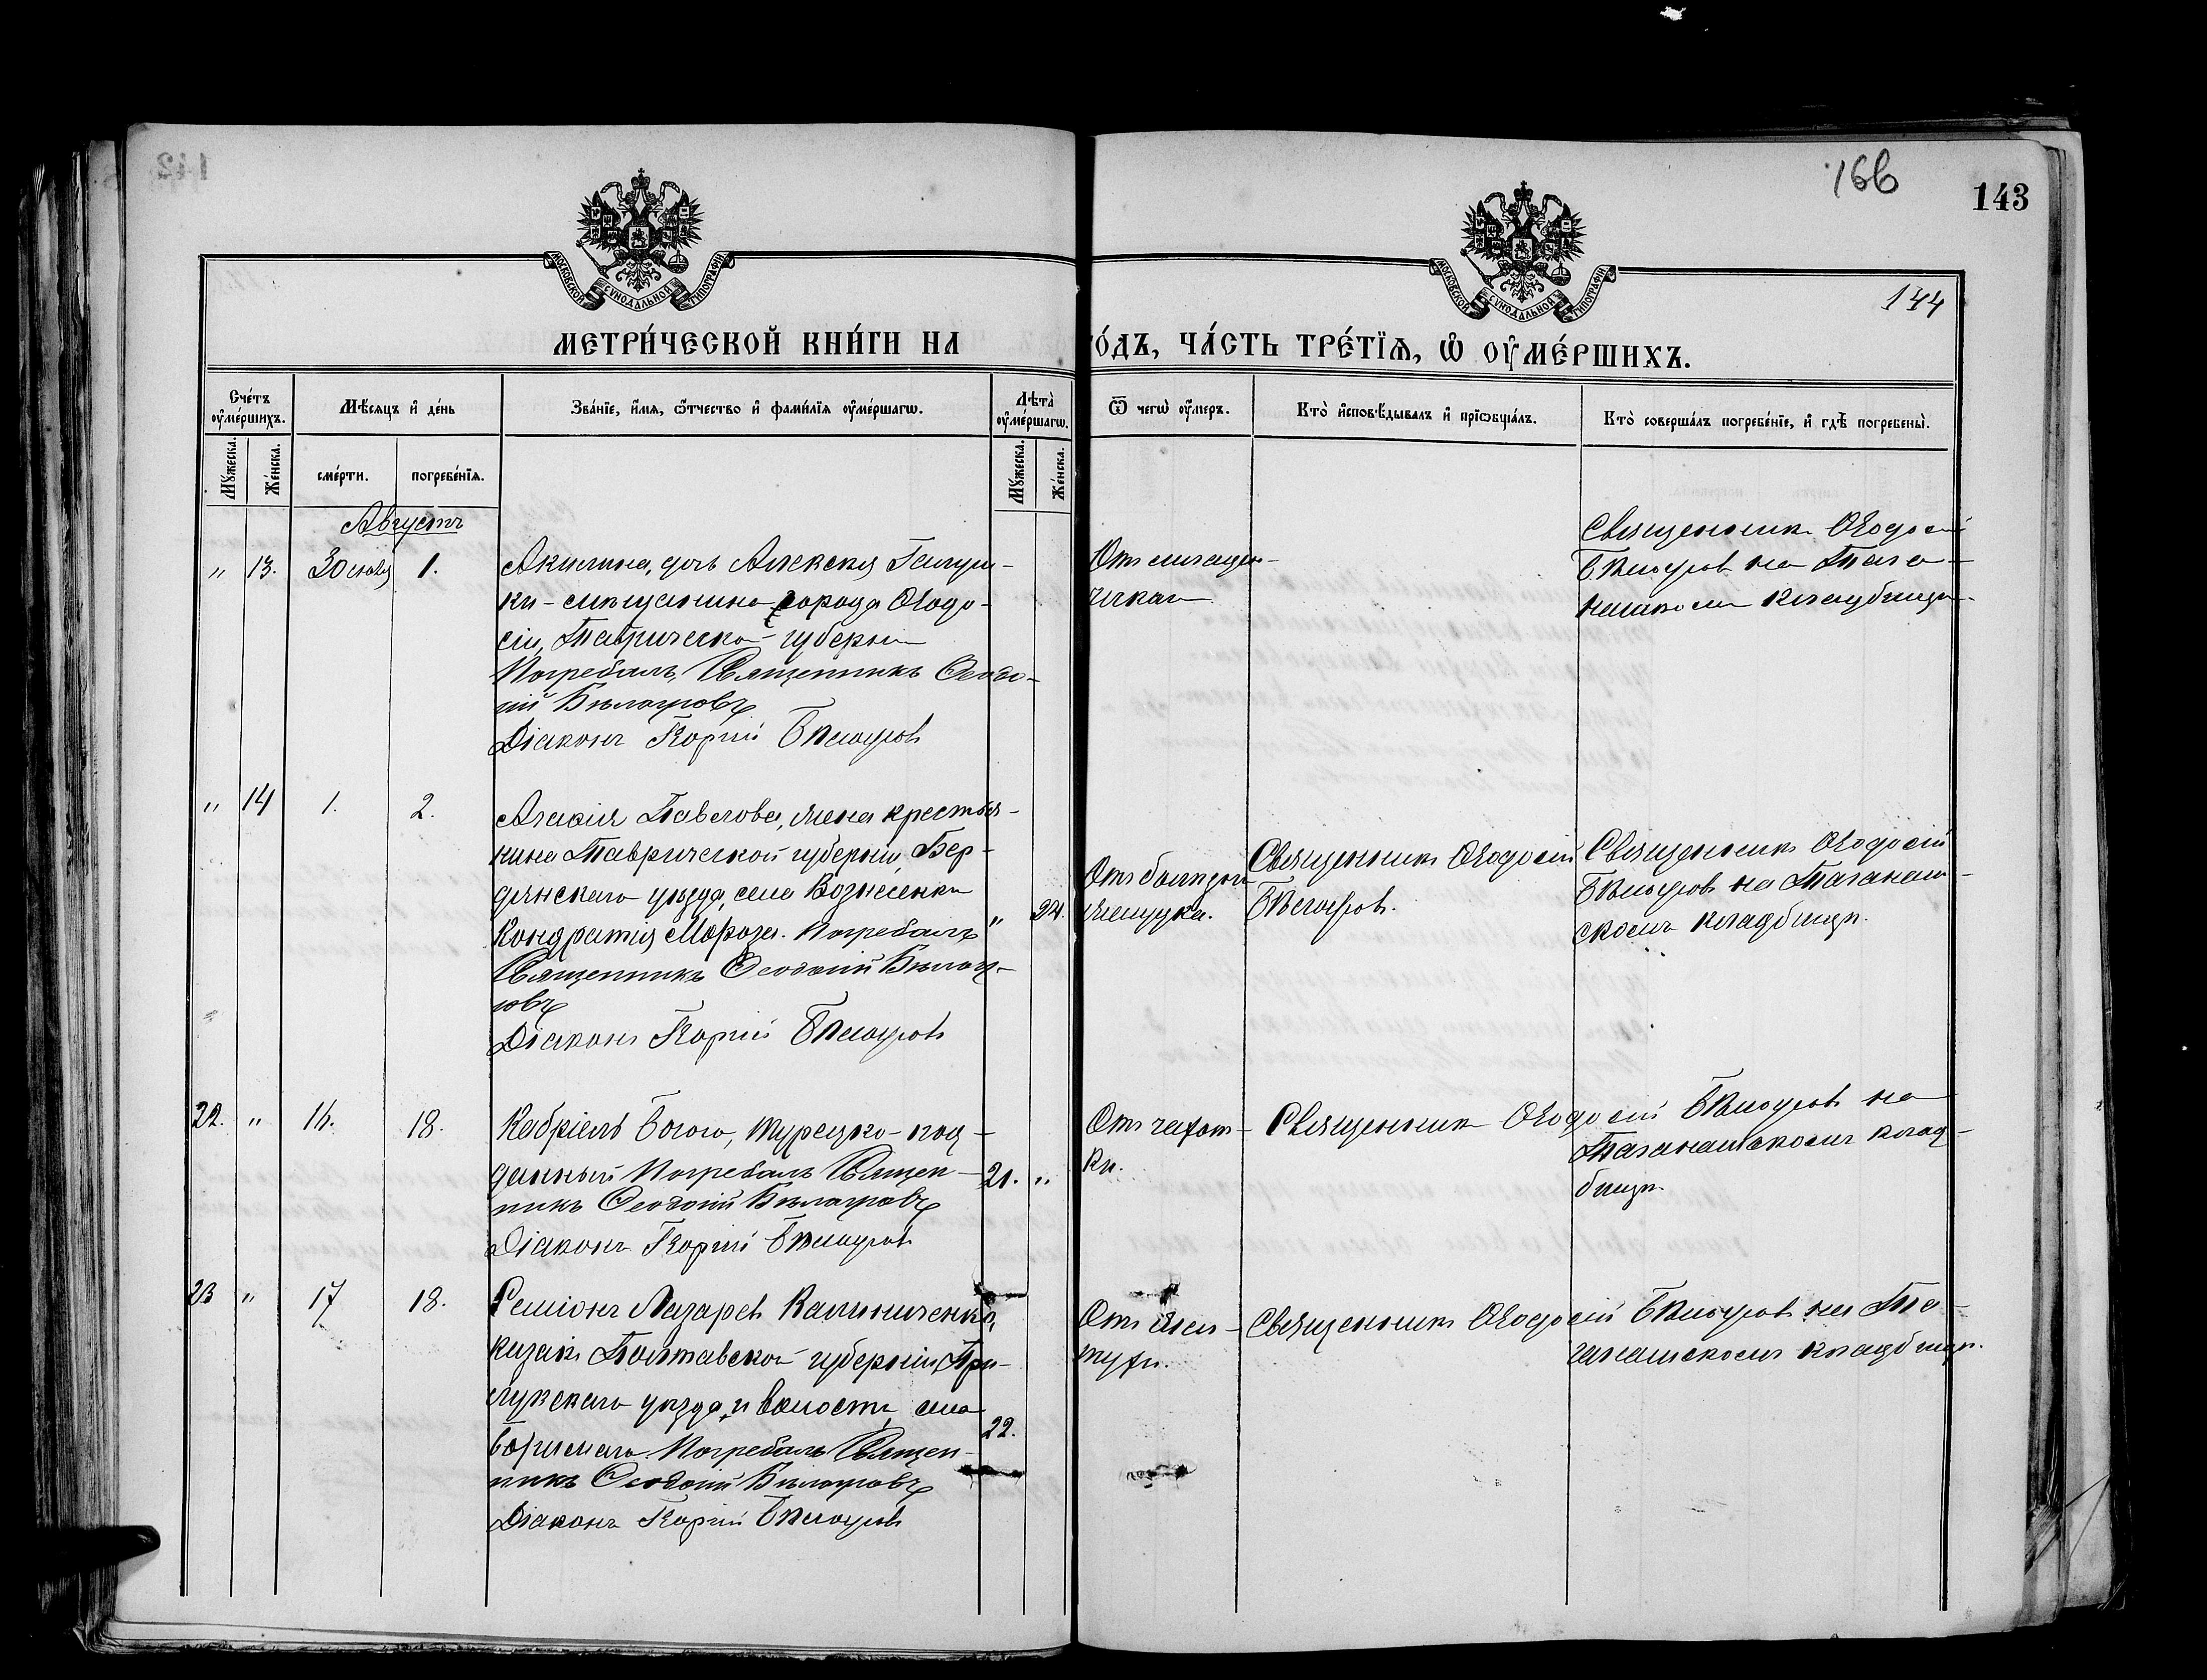 166
143
144
МОСКОВСКОЙ СУНОДАЛЬНОЙ ТИПОГРАФІИ
МОСКОВСКОЙ СУНОДАЛЬНОЙ ТИПОГРАФІИ
МЕТРИ́ЧЕСКОЙ КНИ́ГИ НА
ГО́ДЪ, ЧА́СТЬ ТРЕ́ТЇѦ, Ѡ҆ ОУ҆МЕ́РШИХЪ.
Сче́тъ оу҆ме́ршихъ.
Мѣ́сяцъ и҆ де́нь
Зва́нїе, и҆́мя, ѻ҆́тчество и҆ фами́лїя оу҆ме́ршагѡ.
Лѣта̀ оу҆ме́ршагѡ.
Ѿ чегѡ̀ оу҆́меръ.
Кто̀ и҆сповѣ́дывалъ и҆ прїѡбща́лъ.
Кто̀ соверша́лъ погребе́нїе, и҆ гдѣ̀ погребены̀.
Мꙋ́жеска.
Же́нска.
сме́рти.
погребе́нїя.
Мꙋ́жеска.
Же́нска.
Августъ
„ 13. 30 іюля 1.
Акилина, дочь Алексѣя Галуш-
ки - мѣщанина города Ѳеодо-
сіи, Таврической губерніи
Погребалъ, Священникъ Ѳеодо-
сій Бѣлоусовъ
Діаконъ Георгій Бѣлоусовъ
Отъ младен-
ческой
Священникъ Ѳеодосій
Бѣлоусовъ на Тага-
нашскомъ кладбищѣ.
„ 14 1. 2.
Агафія Павлова, жена крестья-
нина Таврической губерніи, Бер-
дянскаго уѣзда, села Вознесенки
Кондратія Мороза. Погребалъ
Священникъ Ѳеодосій Бѣлоу-
совъ
Діаконъ Георгій Бѣлоусовъ
„ 24.
Отъ болѣзни
желудка.
Священникъ Ѳеодосій
Бѣлоусовъ.
Священникъ Ѳеодосій
Бѣлоусовъ на Таганаш-
скомъ кладбищѣ.
22. „ 16. 18.
Кабріель Богого, турецко-под-
данный Погребалъ Священ-
никъ Ѳеодосій Бѣлоусовъ
Діаконъ Георгій Бѣлоусовъ
21. „
Отъ чахот-
ки.
Священникъ Ѳеодосій Бѣлоусовъ на
Таганашскомъ клад-
бищѣ.
23 „ 17 18.
Семіонъ Лазаревъ Калиниченко,
казакъ Полтавской губерніи, При-
лукскаго уѣзда, и волости, села
Погребалъ Священ-
никъ Ѳеодосій Бѣлоусовъ
Діаконъ Георгій Бѣлоусовъ
22.
Отъ жел-
тухи.
Священникъ Ѳеодосій Бѣлоусовъ на Та-
ганашскомъ кладбищѣ.